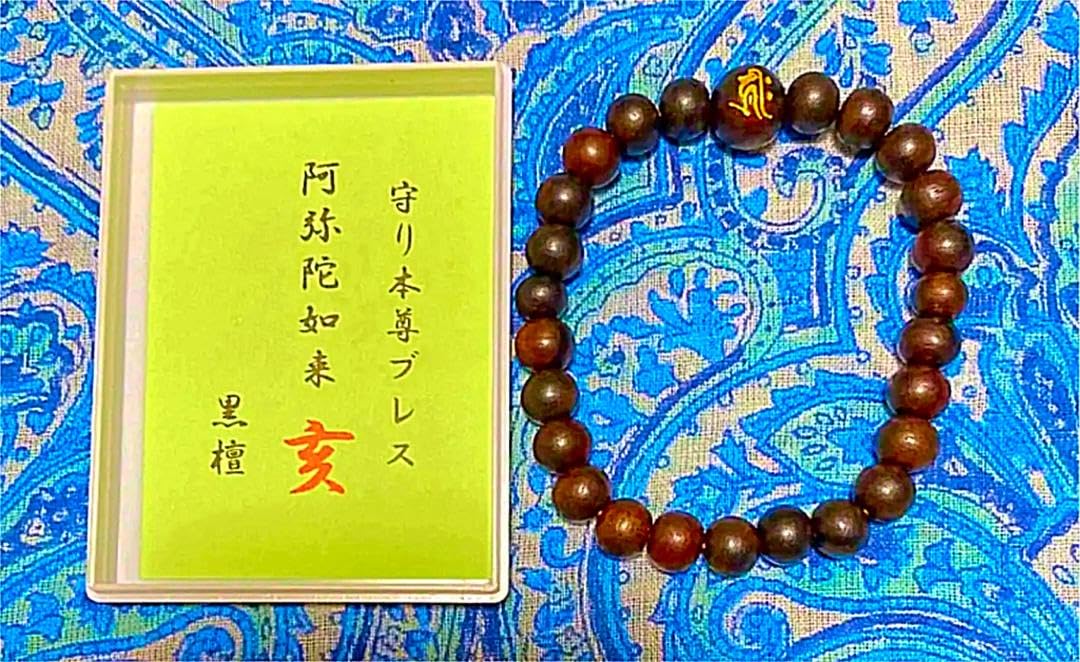 守り本尊ブレス
阿弥陀如来 亥
黒檀
𑖮𑖿𑖨𑖱𑖾